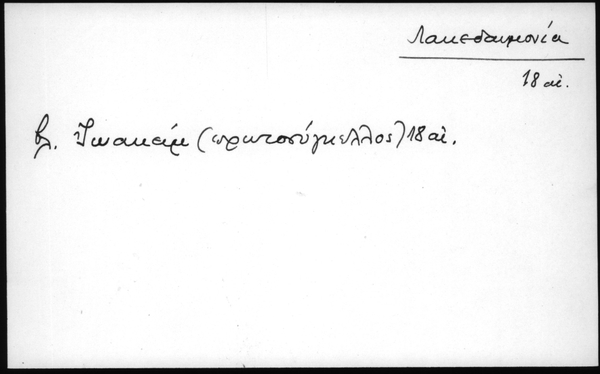 Λακεδαιμονία
18 αἰ.
βλ. Ἰωακείμ (πρωτοσύγκελλος) 18 αἰ.